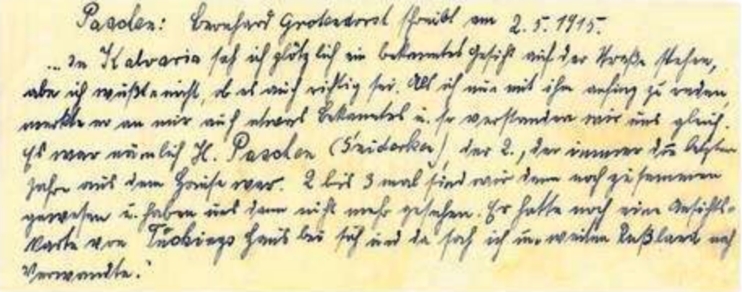 Paschen: Bernhard Grotendorst schreibt am 2.5.1915.
... In Kalvaria sah ich plötzlich ein bekanntes Gesicht auf der Straße stehen,
aber ich wußte nicht, ob es auch richtig sei. Als ich nun mit ihm anfing zu reden,
merkte er an mir auch etwas Bekanntes u. so verstanden wir uns gleich.
Es war nämlich H. Paschen, der 2., der immer die letzten
Jahre aus dem Hause war. 2 bis 3 mal sind wir dann noch zusammen
gewesen u. haben uns dann nicht mehr gesehen. Er hatte noch eine Ansichts-
karte von Tückings Haus bei sich und da sah ich im weiten Rußland noch
Verwandte."